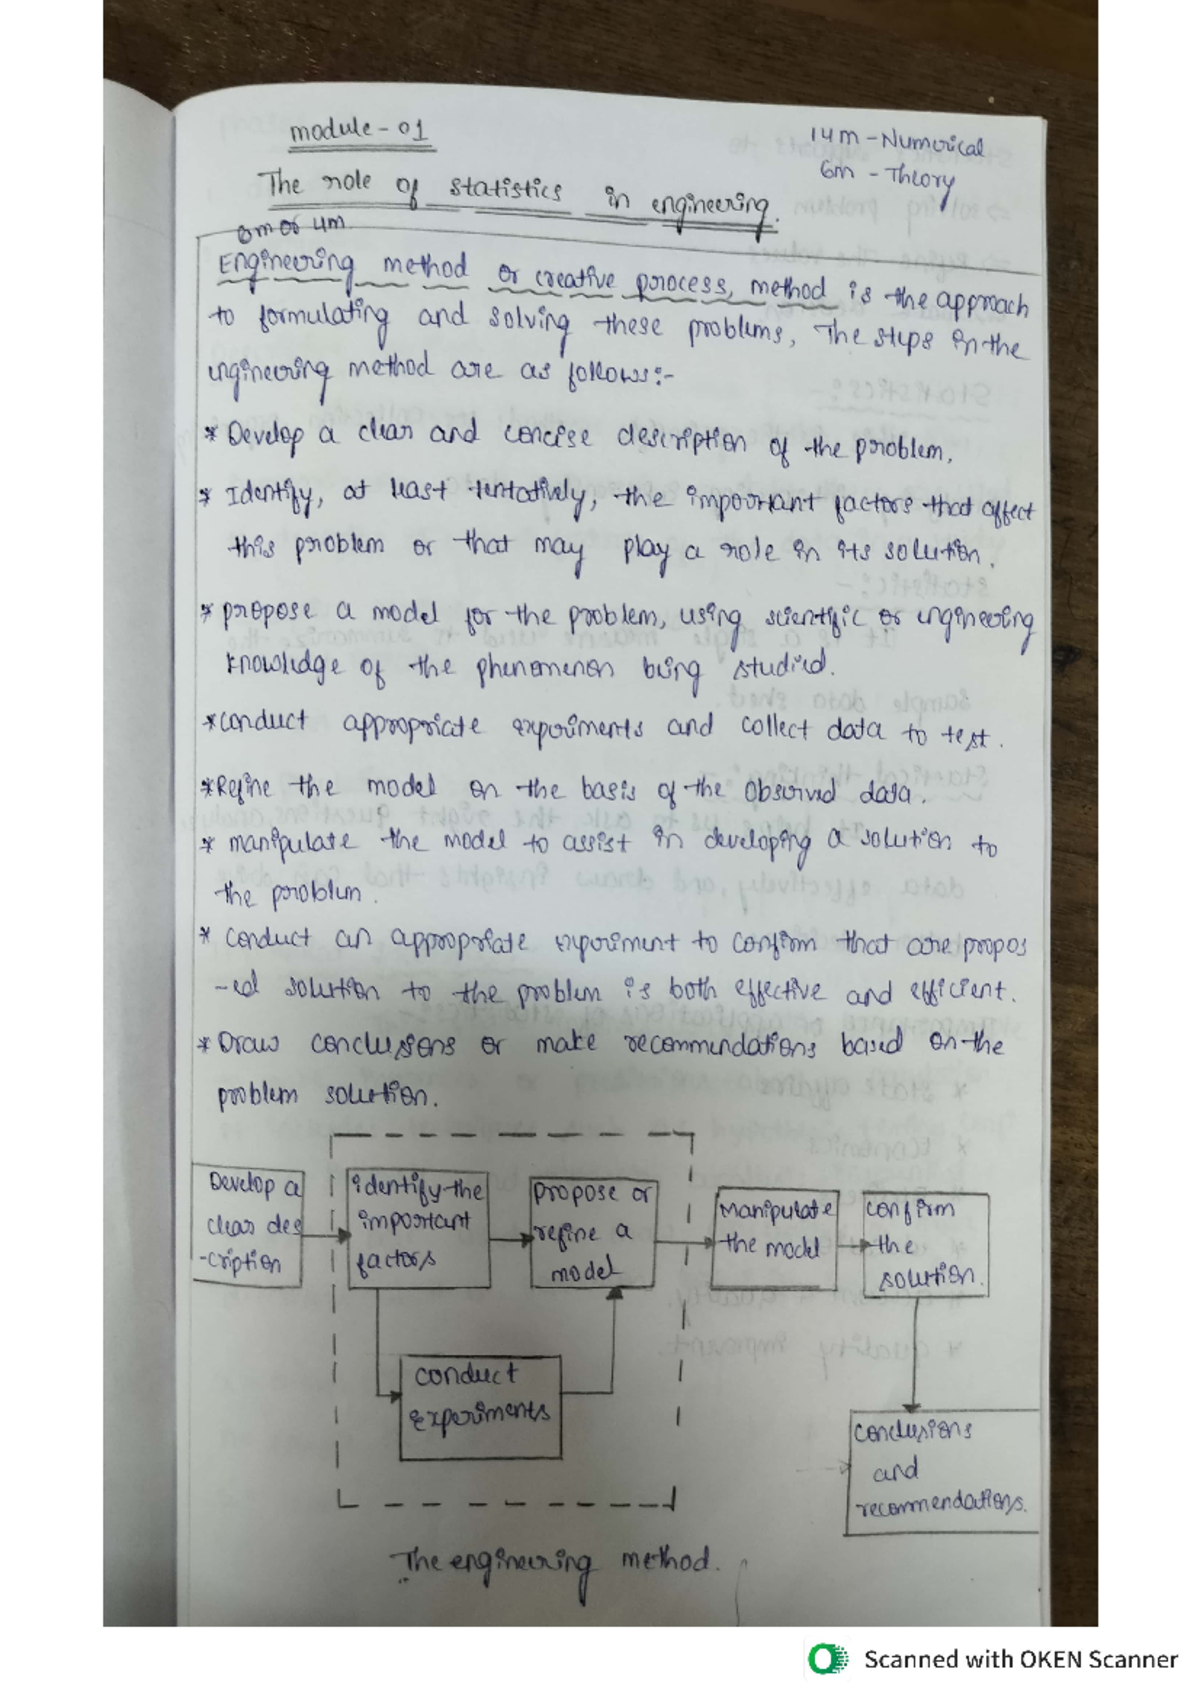 module-01
14m - Numerical
6m - Theory
The role of statistics in engineering.
8m or 4m
Engineering method or creative process, method is the approach
to formulating and solving these problems, The steps in the
engineering method are as follows:-
* Develop a clear and concise description of the problem.
* Identify, at least tentatively, the important factors that affect
this problem or that may play a role in its solution.
* propose a model for the problem, using scientific or engineering
knowledge of the phenomenon being studied.
* conduct appropriate experiments and collect data to test.
* Refine the model on the basis of the observed data.
* manipulate the model to assist in developing a solution to
the problem.
* conduct an appropriate experiment to confirm that are propos
-ed solution to the problem is both effective and efficient.
* Draw conclusions or make recommendations based on the
problem solution.
Develop a
clear des
-cription
identify the
important
factors
propose or
refine a
model
Manipulate
the model
confirm
the
solution.
conduct
experiments
conclusions
and
recommendations.
The engineering method.
Scanned with OKEN Scanner